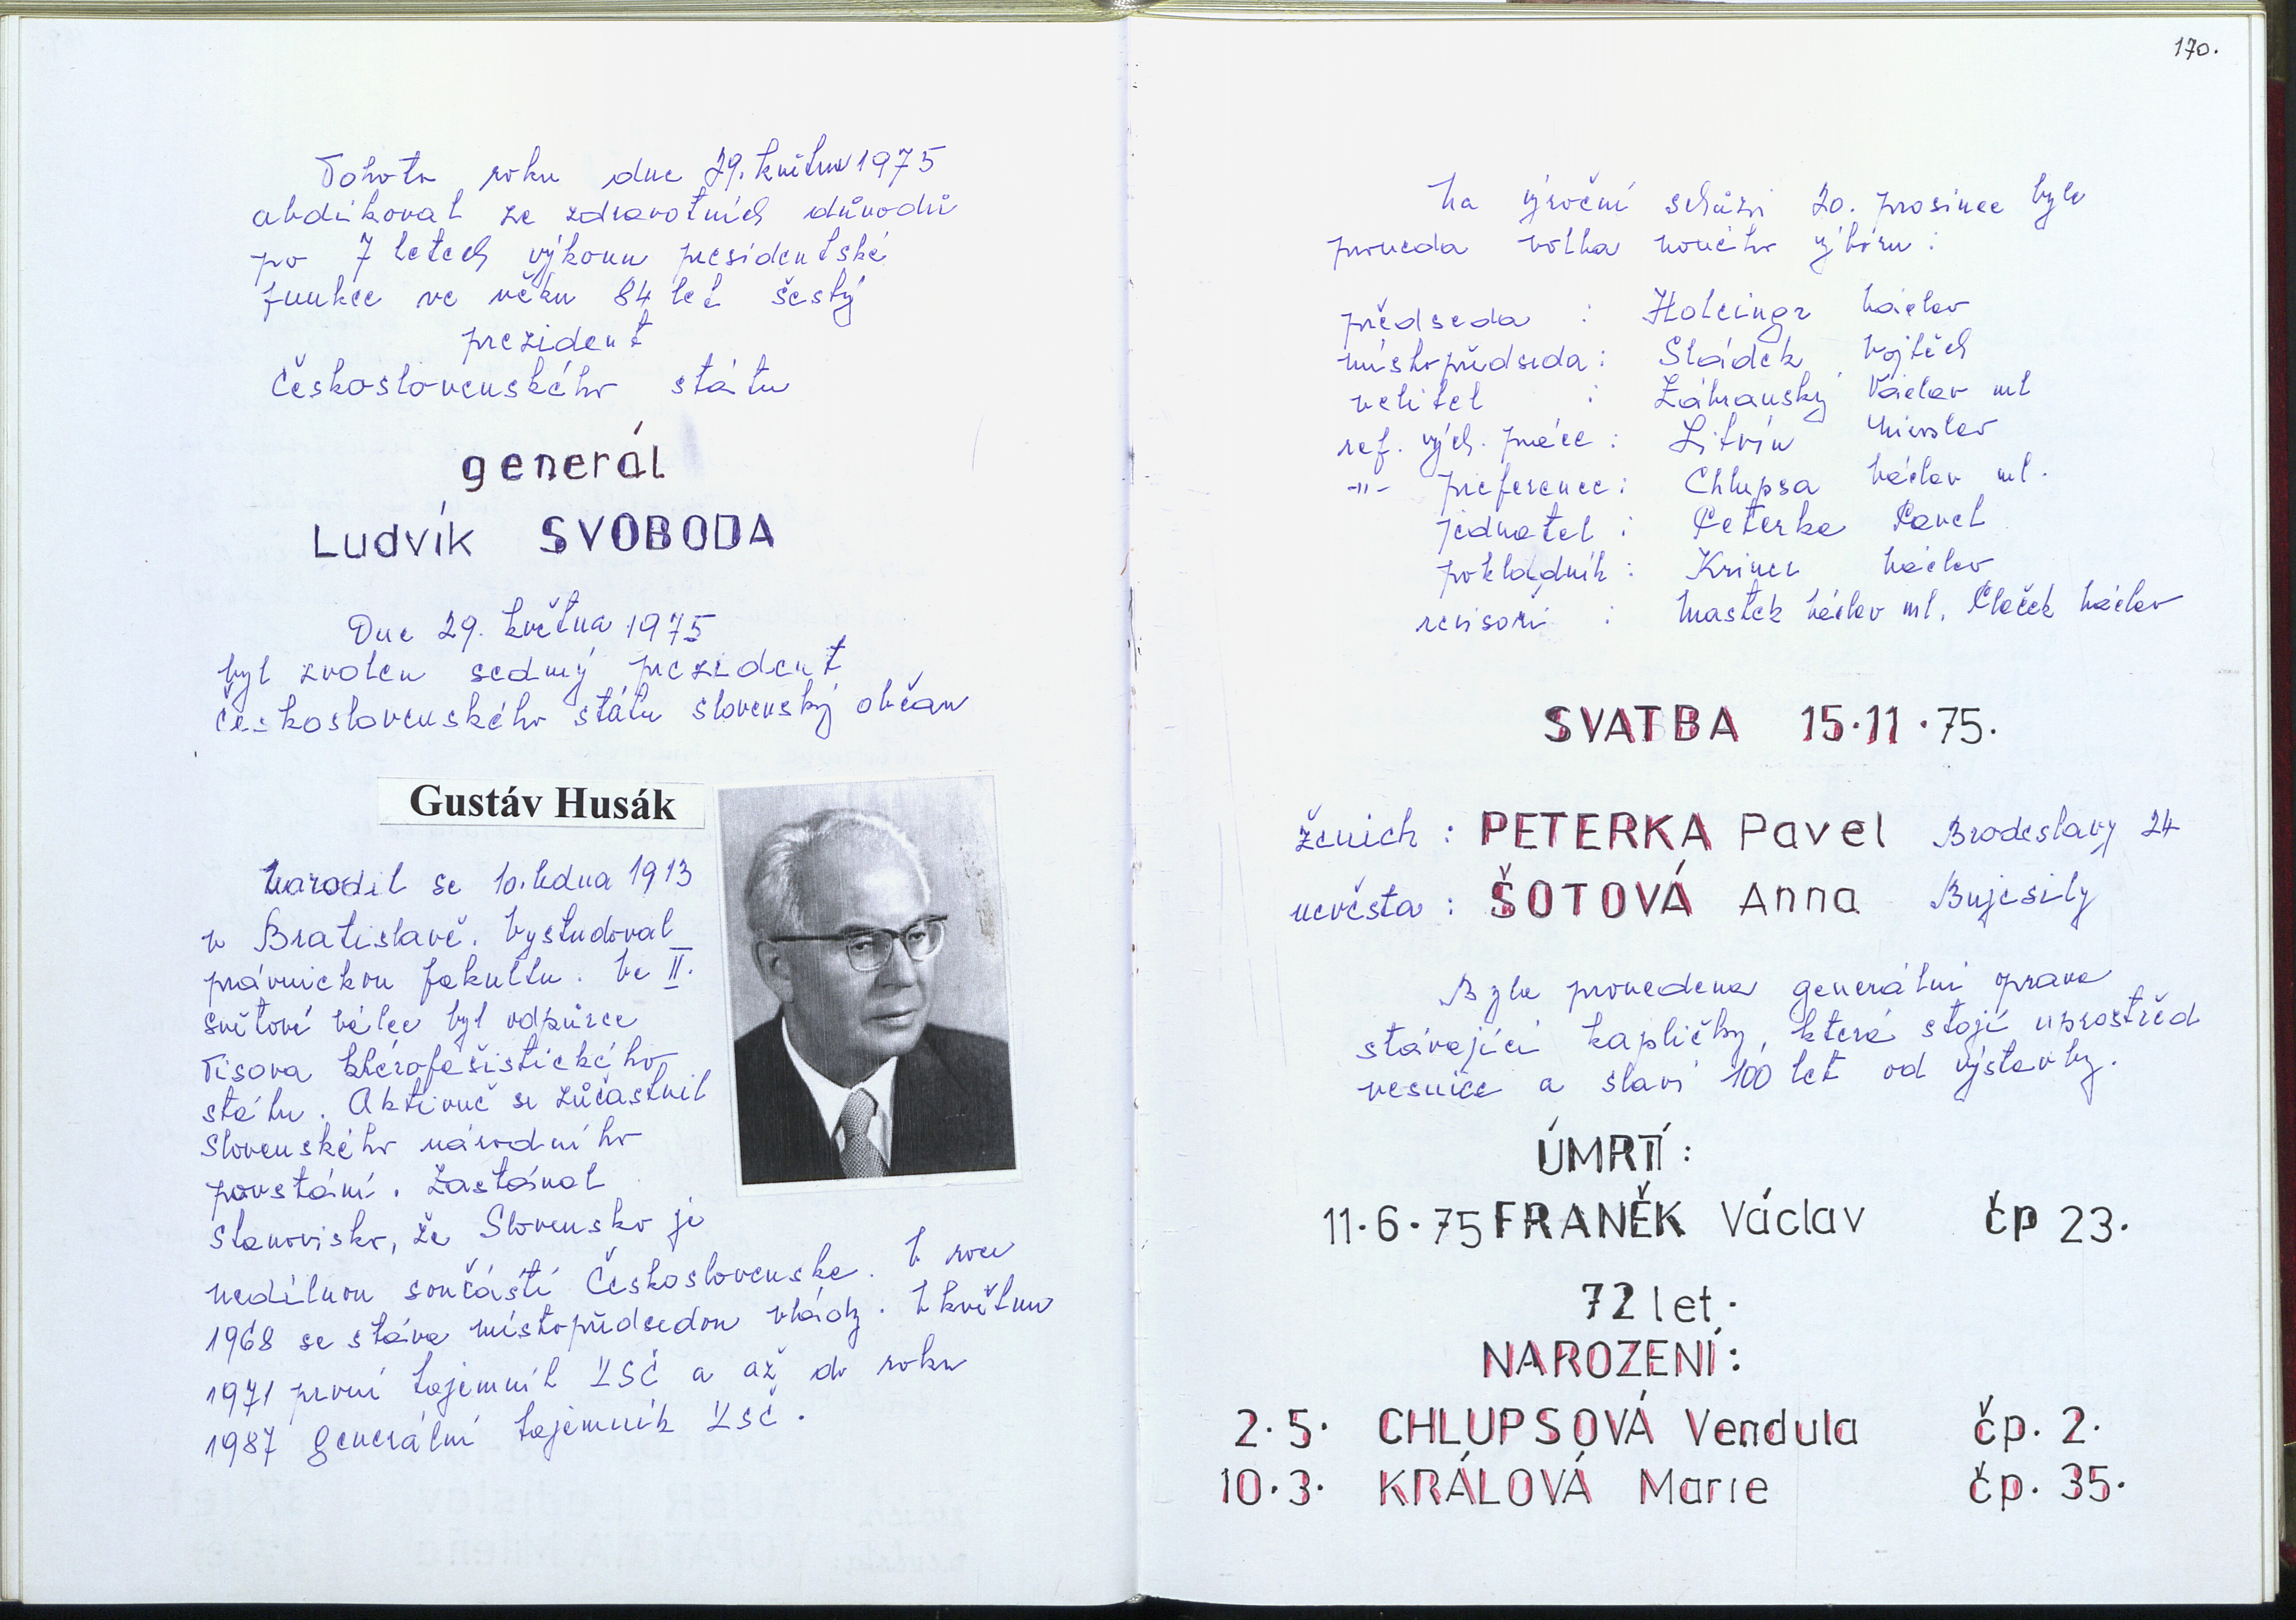 Tohoto roku dne 29. května 1975
abdikoval ze zdravotních důvodů
po 7 letech výkonu presidentské
funkce ve věku 84 let šestý
prezident
Československého státu
generál
Ludvík SVOBODA
Dne 29. května 1975
byl zvolen sedmý prezident
Československého státu slovenský občan
Gustáv Husák
Narodil se 10. ledna 1913
v Bratislavě. Vystudoval
právnickou fakultu. Ve II.
světové válce byl odpůrce
Tisova klérofašistického
státu. Aktivně se zůčastnil
Slovenského národního
povstání. Zastával
stanovisko, že Slovensko je
nedílnou součástí Československa. V roce
1968 se stáva místopředsedou vlády. V květnu
1971 první tajemník KSČ a až do roku
1987 generální tajemník KSČ.
170.
Na výroční schůzi 20. prosince byla
provedа volba nového výboru:
předseda : Holeingr Václav
místopředseda: Sládek Vojtěch
velitel : Záhranský Václav ml
ref. vých. práce : Litvín Miroslav
-"- preference: Chlupsa Václav ml.
jednatel : Peterka Pavel
pokladník: Václav
revisoři : Mastek Václav ml, Václav
SVATBA 15.11.75.
ženich : PETERKA Pavel Brodeslavy 24
nevěsta : ŠOTOVÁ Anna Bujesily
Byla provedena generální oprava
stávající kapličky, která stojí uprostřed
vesnice a slaví 100 let od výstavby.
ÚMRTÍ:
11.6.75 FRANĚK Václav čp 23.
72 let.
NAROZENÍ:
2.5. CHLUPSOVÁ Vendula čp. 2.
10.3. KRÁLOVÁ Marie čp. 35.